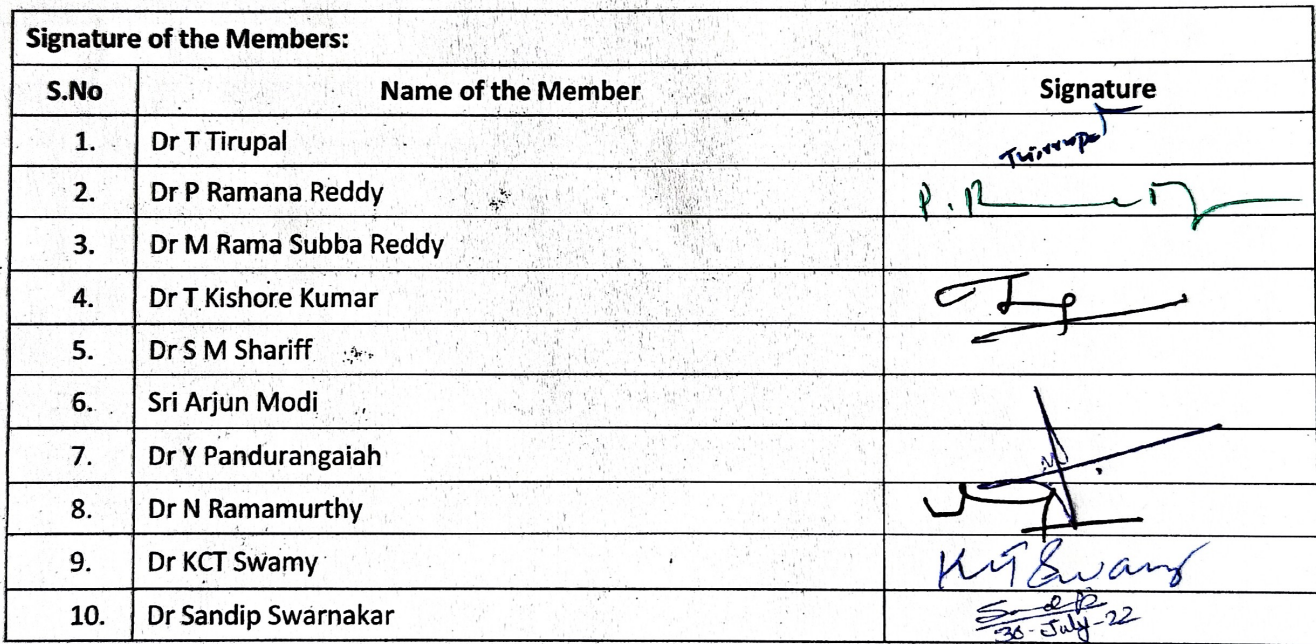 Signature of the Members:
S.No Name of the Member Signature
1. Dr T Tirupal
2. Dr P Ramana Reddy P. R
3. Dr M Rama Subba Reddy
4. Dr T Kishore Kumar
5. Dr S M Shariff
6. Sri Arjun Modi
7. Dr Y Pandurangaiah
8. Dr N Ramamurthy
9. Dr KCT Swamy KCTSwamy
10. Dr Sandip Swarnakar Sandip
30-July-22